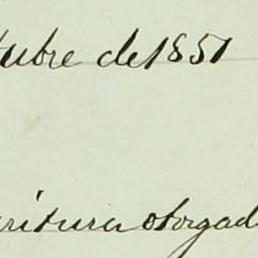 tubre de 1851
critura otorgad